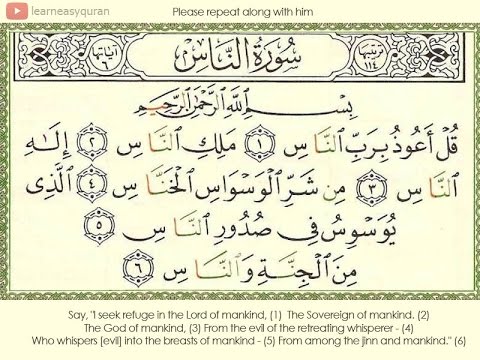 learneasyquran
Please repeat along with him
ترتيبها ١١٤
سُورَةُ النَّاسِ
آياتها ٦
بِسْمِ اللَّهِ الرَّحْمَٰنِ الرَّحِيمِ
قُلْ أَعُوذُ بِرَبِّ ٱلنَّاسِ ١ مَلِكِ ٱلنَّاسِ ٢ إِلَٰهِ
ٱلنَّاسِ ٣ مِن شَرِّ ٱلْوَسْوَاسِ ٱلْخَنَّاسِ ٤ ٱلَّذِى
يُوَسْوِسُ فِى صُدُورِ ٱلنَّاسِ ٥
مِنَ ٱلْجِنَّةِ وَٱلنَّاسِ ٦
Say, "I seek refuge in the Lord of mankind, (1) The Sovereign of mankind. (2)
The God of mankind, (3) From the evil of the retreating whisperer - (4)
Who whispers [evil] into the breasts of mankind - (5) From among the jinn and mankind." (6)